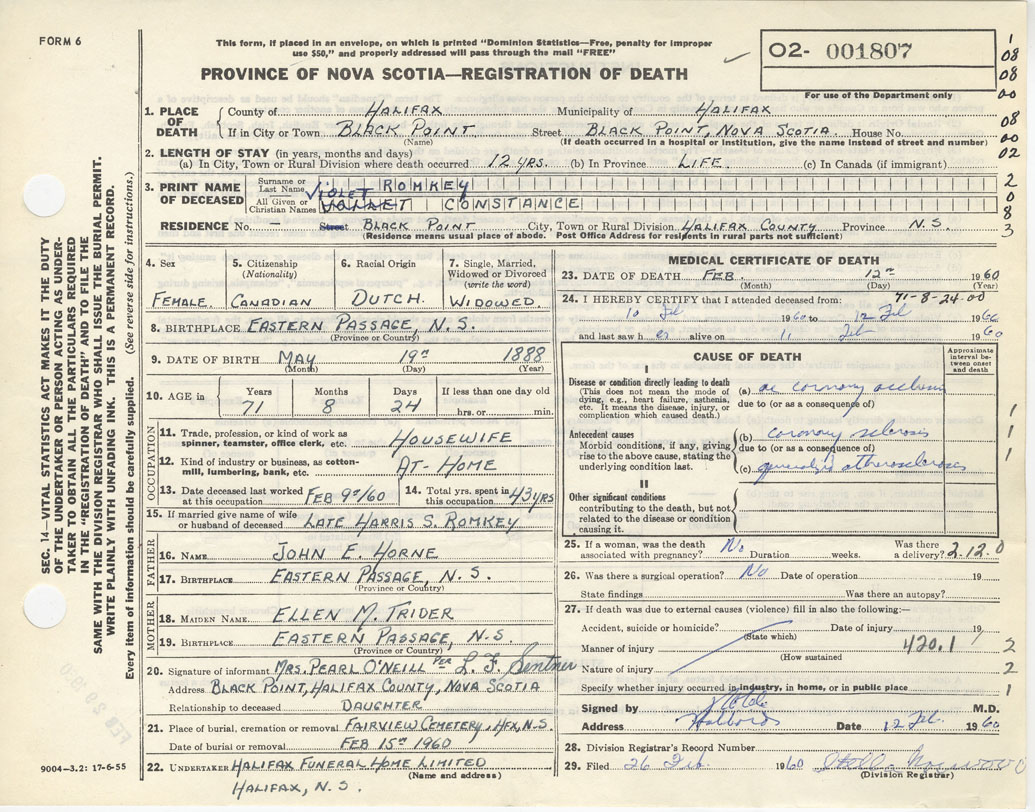 FORM 6
This form, if placed in an envelope, on which is printed "Dominion Statistics—Free, penalty for improper
use $50," and properly addressed will pass through the mail "FREE"
PROVINCE OF NOVA SCOTIA—REGISTRATION OF DEATH
O2- 001807
For use of the Department only
1
08
08
00
08
00
02
2
0
8
3
1. PLACE OF DEATH
County of HALIFAX Municipality of HALIFAX
If in City or Town BLACK POINT Street BLACK POINT, NOVA SCOTIA. House No.
(Name) (If death occurred in a hospital or institution, give the name instead of street and number)
2. LENGTH OF STAY (in years, months and days)
(a) In City, Town or Rural Division where death occurred 12 YRS. (b) In Province LIFE. (c) In Canada (if immigrant)
3. PRINT NAME OF DECEASED
Surname or Last Name ROMKEY
VIOLET
All Given or Christian Names CONSTANCE
RESIDENCE No. — Street BLACK POINT City, Town or Rural Division HALIFAX COUNTY Province N.S.
(Residence means usual place of abode. Post Office Address for residents in rural parts not sufficient)
4. Sex
FEMALE.
5. Citizenship
(Nationality)
CANADIAN
6. Racial Origin
DUTCH.
7. Single, Married, Widowed or Divorced
(write the word)
WIDOWED
8. BIRTHPLACE EASTERN PASSAGE, N.S.
(Province or Country)
9. DATE OF BIRTH MAY 19TH 1888
(Month) (Day) (Year)
10. AGE in
Years Months Days If less than one day old
71 8 24 hrs. or min.
OCCUPATION
11. Trade, profession, or kind of work as spinner, teamster, office clerk, etc. HOUSEWIFE
12. Kind of industry or business, as cotton-mill, lumbering, bank, etc. AT-HOME
13. Date deceased last worked at this occupation. FEB 9TH/60
14. Total yrs. spent in this occupation 43 YRS
15. If married give name of wife or husband of deceased LATE HARRIS S. ROMKEY
FATHER
16. NAME JOHN E. HORNE
17. BIRTHPLACE EASTERN PASSAGE, N.S.
(Province or Country)
MOTHER
18. MAIDEN NAME ELLEN M. TRIDER
19. BIRTHPLACE EASTERN PASSAGE, N.S.
(Province or Country)
20. Signature of informant MRS. PEARL O'NEILL PER L. F.
Address BLACK POINT, HALIFAX COUNTY, NOVA SCOTIA
Relationship to deceased DAUGHTER
21. Place of burial, cremation or removal FAIRVIEW CEMETERY, HFX, N.S.
Date of burial or removal FEB 15TH 1960
22. UNDERTAKER HALIFAX FUNERAL HOME LIMITED
(Name and address)
HALIFAX, N.S.
9004—3.2: 17-6-55
SEC. 14—VITAL STATISTICS ACT MAKES IT THE DUTY
OF THE UNDERTAKER OR PERSON ACTING AS UNDER-
TAKER TO OBTAIN ALL THE PARTICULARS REQUIRED
IN THE "REGISTRATION OF DEATH" AND FILE THE
SAME WITH THE DIVISION REGISTRAR WHO SHALL ISSUE THE BURIAL PERMIT.
WRITE PLAINLY WITH UNFADING INK. THIS IS A PERMANENT RECORD.
Every item of information should be carefully supplied. (See reverse side for instructions.)
MEDICAL CERTIFICATE OF DEATH
23. DATE OF DEATH FEB. 12TH 1960
(Month) (Day) (Year)
24. I HEREBY CERTIFY that I attended deceased from: 71-8-24-00
10 Feb 1960 to 12 Feb 19
and last saw h er alive on 11 Feb 1960
CAUSE OF DEATH
Approximate interval between onset and death
I
Disease or condition directly leading to death
(This does not mean the mode of dying, e.g., heart failure, asthenia, etc. It means the disease, injury, or complication which caused death.)
(a) ac coronary occlusion
due to (or as a consequence of)
Antecedent causes
Morbid conditions, if any, giving rise to the above cause, stating the underlying condition last.
(b) coronary sclerosis
due to (or as a consequence of)
(c) generalized atherosclerosis
II
Other significant conditions
contributing to the death, but not related to the disease or condition causing it.
1
1
1
25. If a woman, was the death associated with pregnancy? No Duration weeks. Was there a delivery? 2.12.0
26. Was there a surgical operation? No Date of operation 19
State findings Was there an autopsy?
27. If death was due to external causes (violence) fill in also the following:—
Accident, suicide or homicide? Date of injury 19
(State which)
Manner of injury 420.1 2
(How sustained
Nature of injury 2
Specify whether injury occurred in industry, in home, or in public place 1
Signed by M.D.
Address Date 12 Feb. 1960
28. Division Registrar's Record Number
29. Filed 26 Feb. 1960
(Division Registrar)